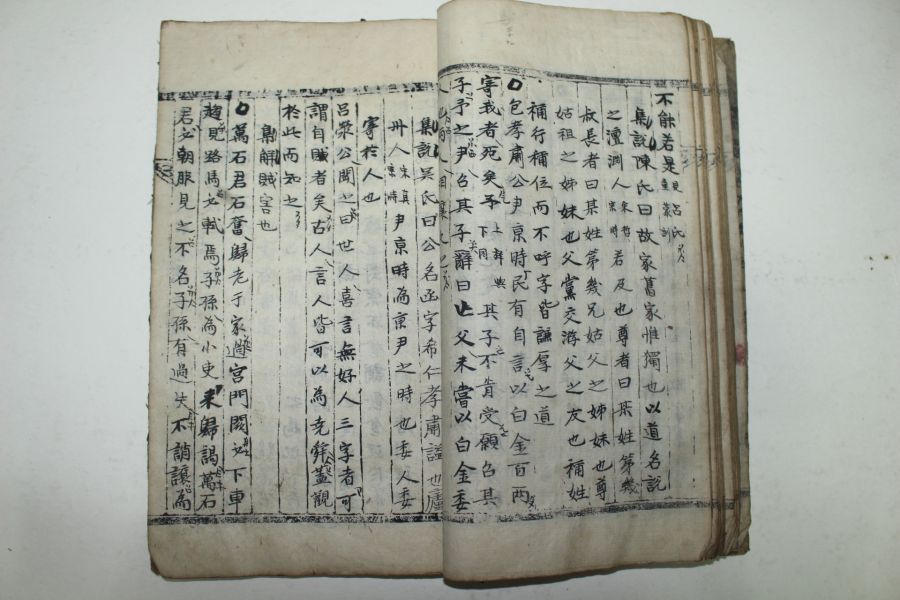 不能若是
集說陳氏曰故家舊家惟獨也以道名說
之澶淵人 若及也尊者曰某姓第幾
叔長者曰某姓第幾兄姑父之姊妹也尊
姑祖之姊妹也父黨交游父之友也補姓
補行補位而不呼字皆謙厚之道
○包孝肅公尹京時民有自言以白金百兩
寄我者死矣予 其子不肯受願召其
子予之尹召其子辭曰亡父未嘗以白金委
人也
集說吳氏曰公名 字希仁孝肅謚也廬
州人 尹京時為 尹之時也委人委
寄於人也
呂滎公聞之曰世人喜言無好人三字者可
謂自賊者矣古人言人皆可以為堯舜蓋觀
於此而知之
集解賊害也
○萬石君石奮歸老于家過宮門闕必下車
趨見路馬必軾焉子孫為小吏来歸謁萬石
君必朝服見之不名子孫有過失不誚讓為